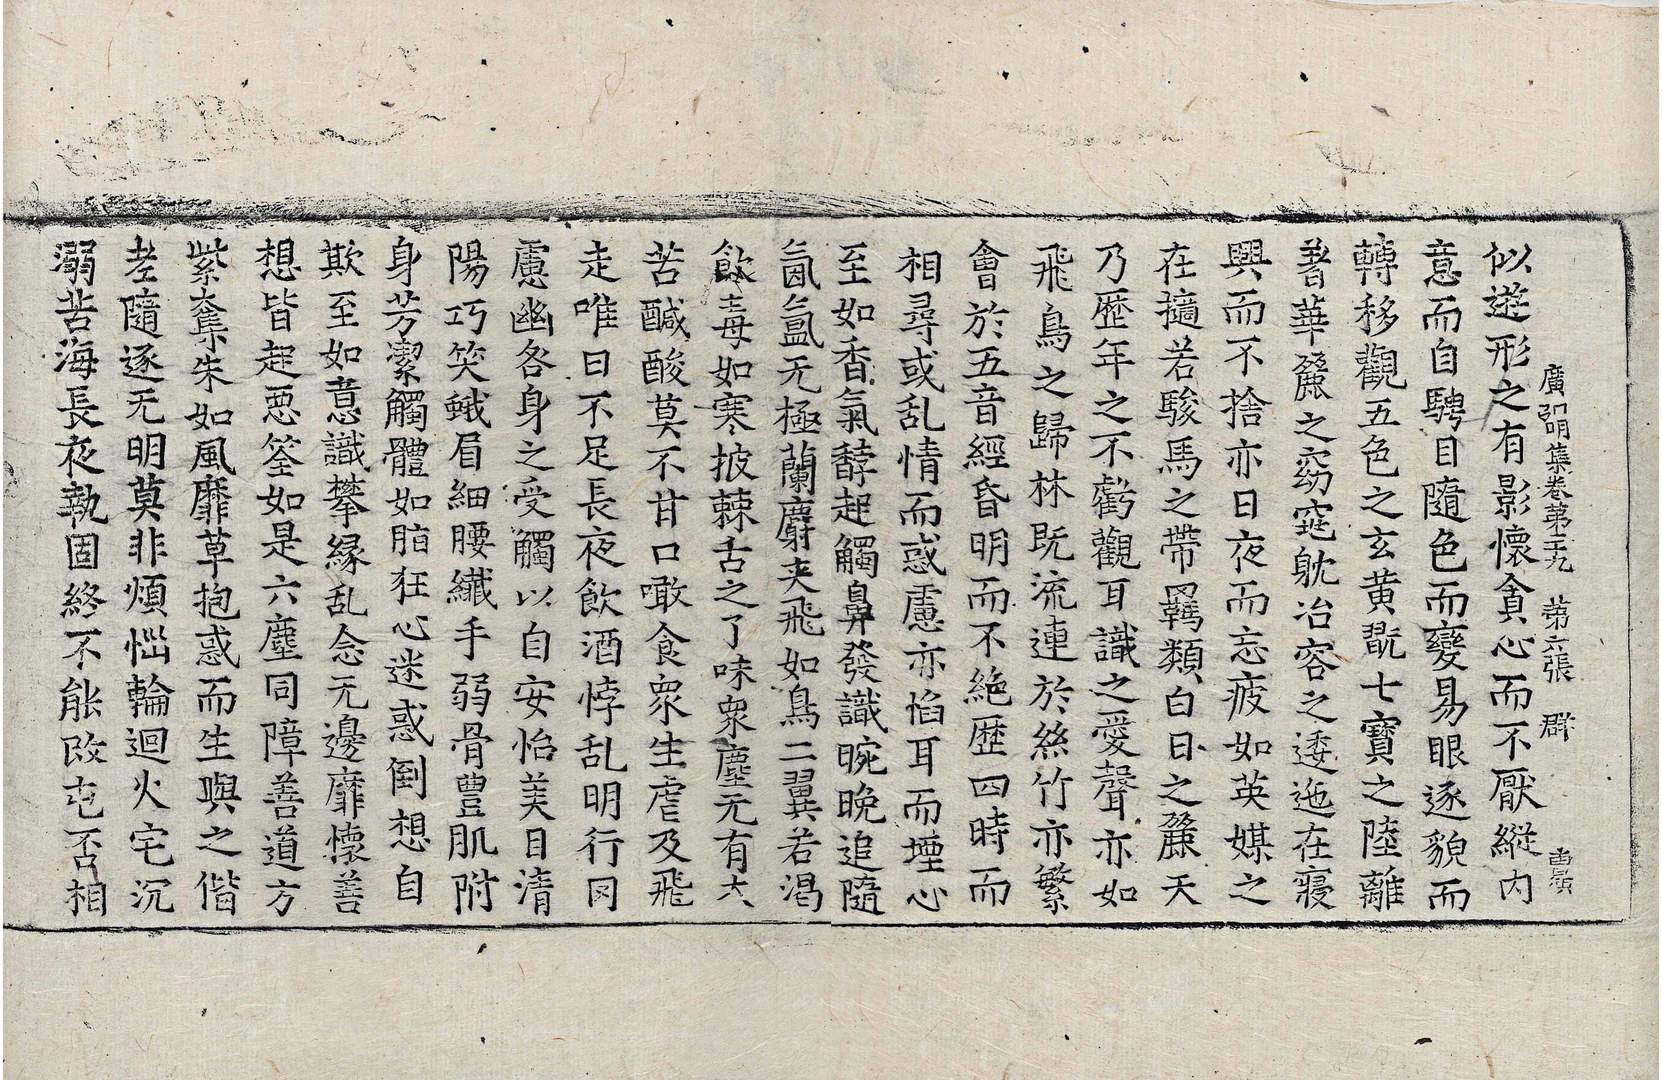 廣弘明集卷第二十九 第六張 群
似遊形之有影懷貪心而不厭縱內
意而自騁目隨色而變易眼逐貌而
轉移觀五色之玄黃翫七寶之陸離
著華麗之窈窕躭冶容之逶迤在寢
興而不捨亦日夜而忘疲如英媒之
在擿若駿馬之帶羈類白日之麗天
乃歷年之不虧觀耳識之愛聲亦如
飛鳥之歸林既流連於絲竹亦繁
會於五音經昏明而不絶歷四時而
相尋或乱情而惑慮亦惂耳而堙心
至如香氣馞起觸鼻發識晼晚追隨
氤氳无極蘭麝夾飛如鳥二翼若渴
飲毒如寒披棘舌之了味衆塵无有大
苦醎酸莫不甘口噉食衆生虐及飛
走唯日不足長夜飲酒悖乱明行罔
慮幽咎身之受觸以自安怡美目清
陽巧笑蛾眉細腰纖手弱骨豐肌附
身芳潔觸體如脂狂心迷惑倒想自
欺至如意識攀縁乱念无邊靡懷善
想皆起惡筌如是六塵同障善道方
紫奪朱如風靡草抱惑而生與之偕
老隨逐无明莫非煩惱輪迴火宅沉
溺苦海長夜執固終不能改屯否相